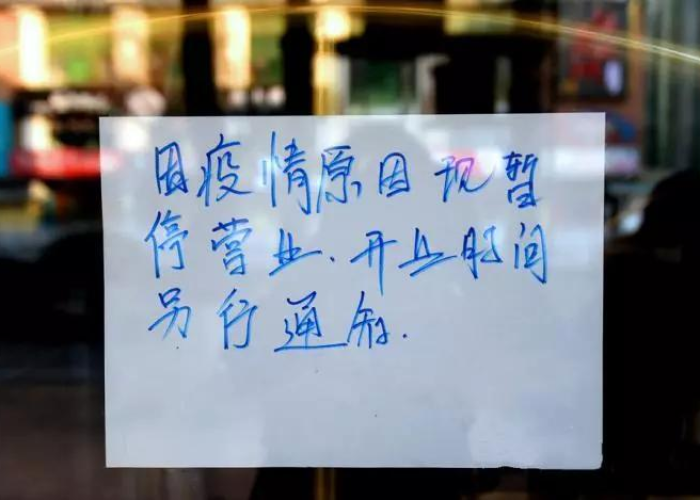 因疫情原因现暂
停营业.开业时间
另行通知.